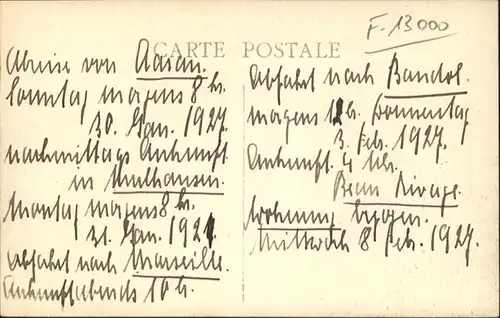 F. 13000
CARTE POSTALE
Abreise von Aarau.
Sonntag morgens 8 h.
30. Jan. 1927.
nachmittags Ankunft
in Mulhausen.
Montag morgens 8 h.
31. Jan. 1927.
Abfahrt nach Marseille.
Ankunft abends 10 h.
Abfahrt nach Bandol.
morgens 12 h. Donnerstag
3. Feb. 1927.
Ankunft 4 Uhr.
Beau Rivage.
Wohnung bezogen.
Mittwoch 8 Feb. 1927.